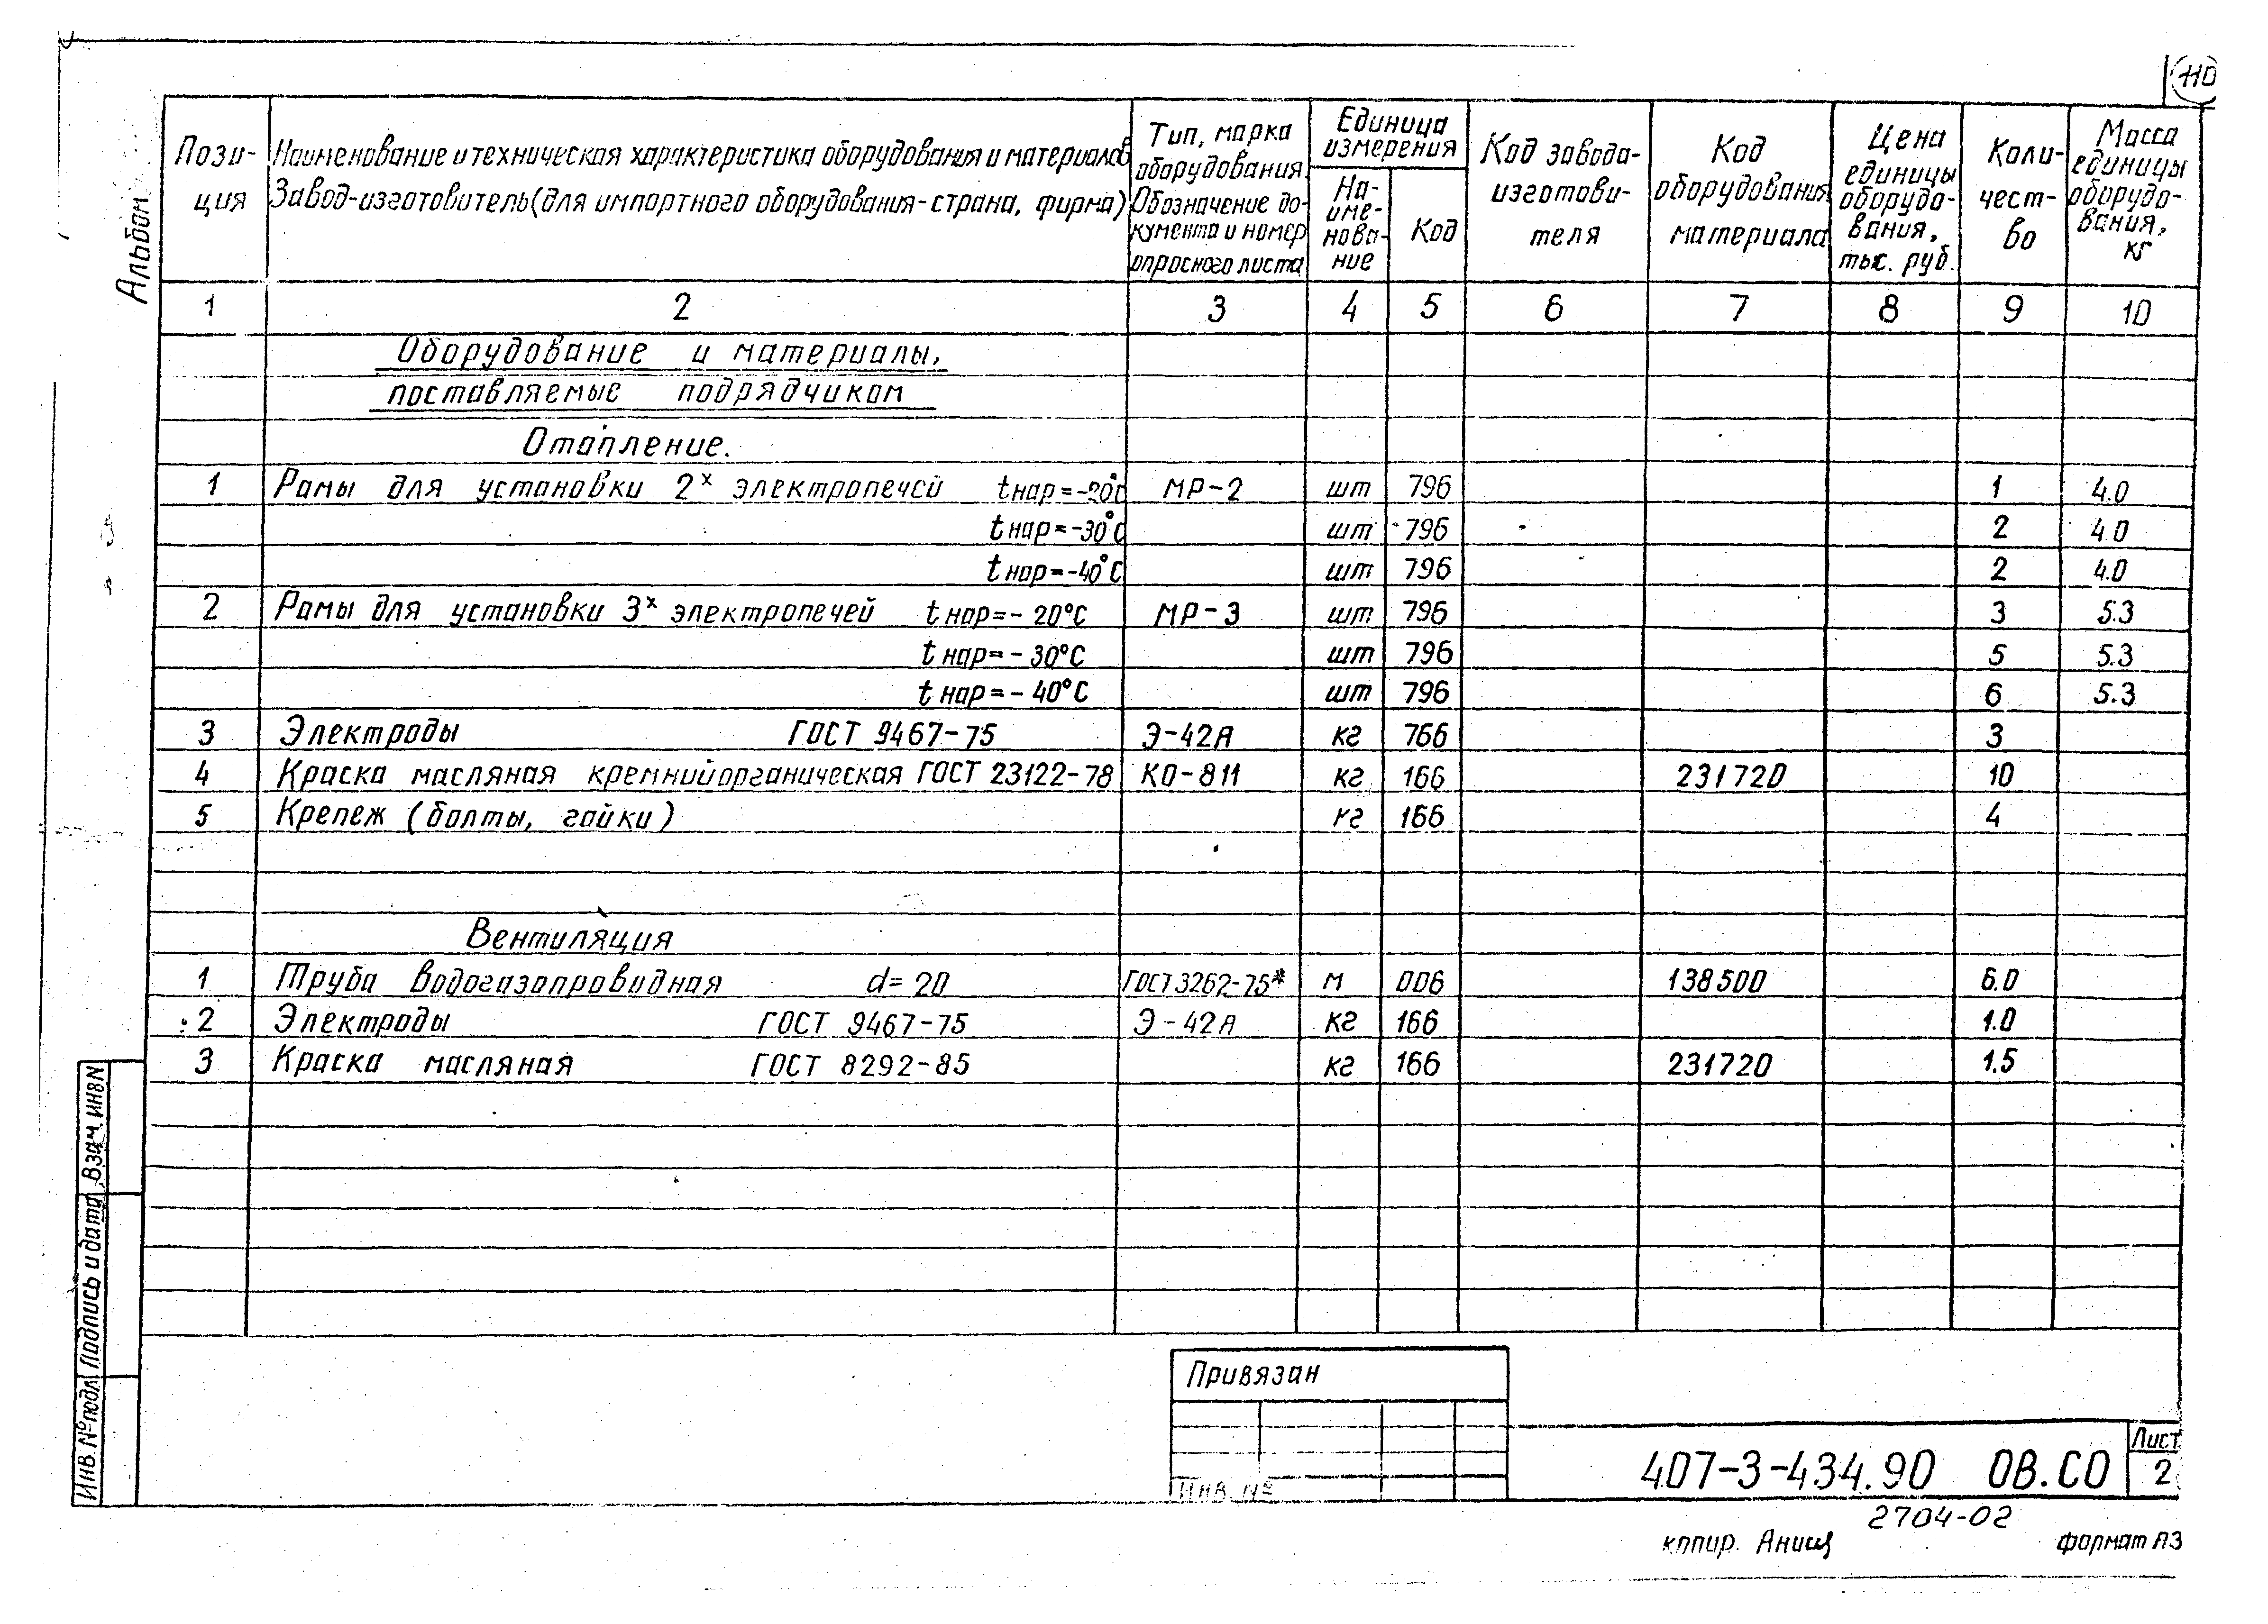 110
Альбом
Пози-
ция
Наименование и техническая характеристика оборудования и материалов
Завод-изготовитель (для импортного оборудования-страна, фирма)
Тип, марка
оборудования.
Обозначение до-
кумента и номер
опросного листа
Единица
измерения
На-
име-
нова-
ние
Код
Код завода-
изготови-
теля
Код
оборудования
материала
Цена
единицы
оборудо-
вания,
тыс. руб.
Коли-
чест-
во
Масса
единицы
оборудо-
вания,
кг
1 2 3 4 5 6 7 8 9 10
Оборудование и материалы,
поставляемые подрядчиком
Отопление.
1 Рамы для установки 2х электропечей tнар=-20°С МР-2 шт 796 1 4.0
tнар=-30°С шт 796 2 4.0
tнар=-40°С шт 796 2 4.0
2 Рамы для установки 3х электропечей tнар=-20°С МР-3 шт 796 3 5.3
tнар=-30°С шт 796 5 5.3
tнар=-40°С шт 796 6 5.3
3 Электроды ГОСТ 9467-75 Э-42А кг 766 3
4 Краска масляная кремнийорганическая ГОСТ 23122-78 КО-811 кг 166 231720 10
5 Крепеж (болты, гайки) кг 166 4
Вентиляция
1 Труба водогазопроводная d=20 ГОСТ 3262-75* м 006 138500 6.0
2 Электроды ГОСТ 9467-75 Э-42А кг 166 1.0
3 Краска масляная ГОСТ 8292-85 кг 166 231720 1.5
Взам. инв N
Подпись и дата
Инв. № подл
Привязан
Инв. №
407-3-434.90 ОВ.СО
Лист
2
2704-02
копир.
формат А3